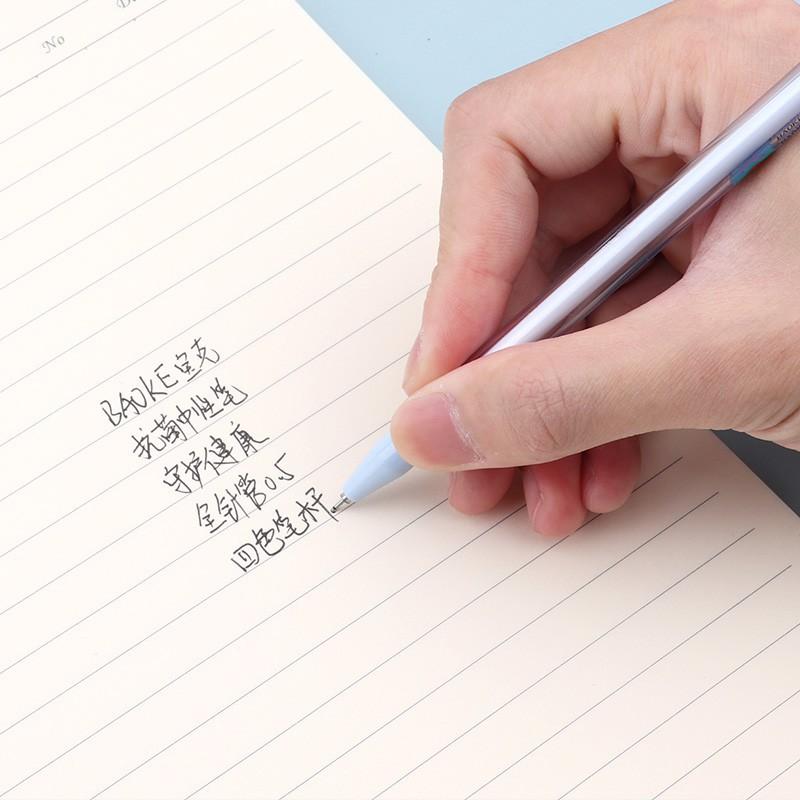 No
BAOKE宝克
抗菌中性笔
守护健康
全针管0.5
四色笔杆
BAOKE